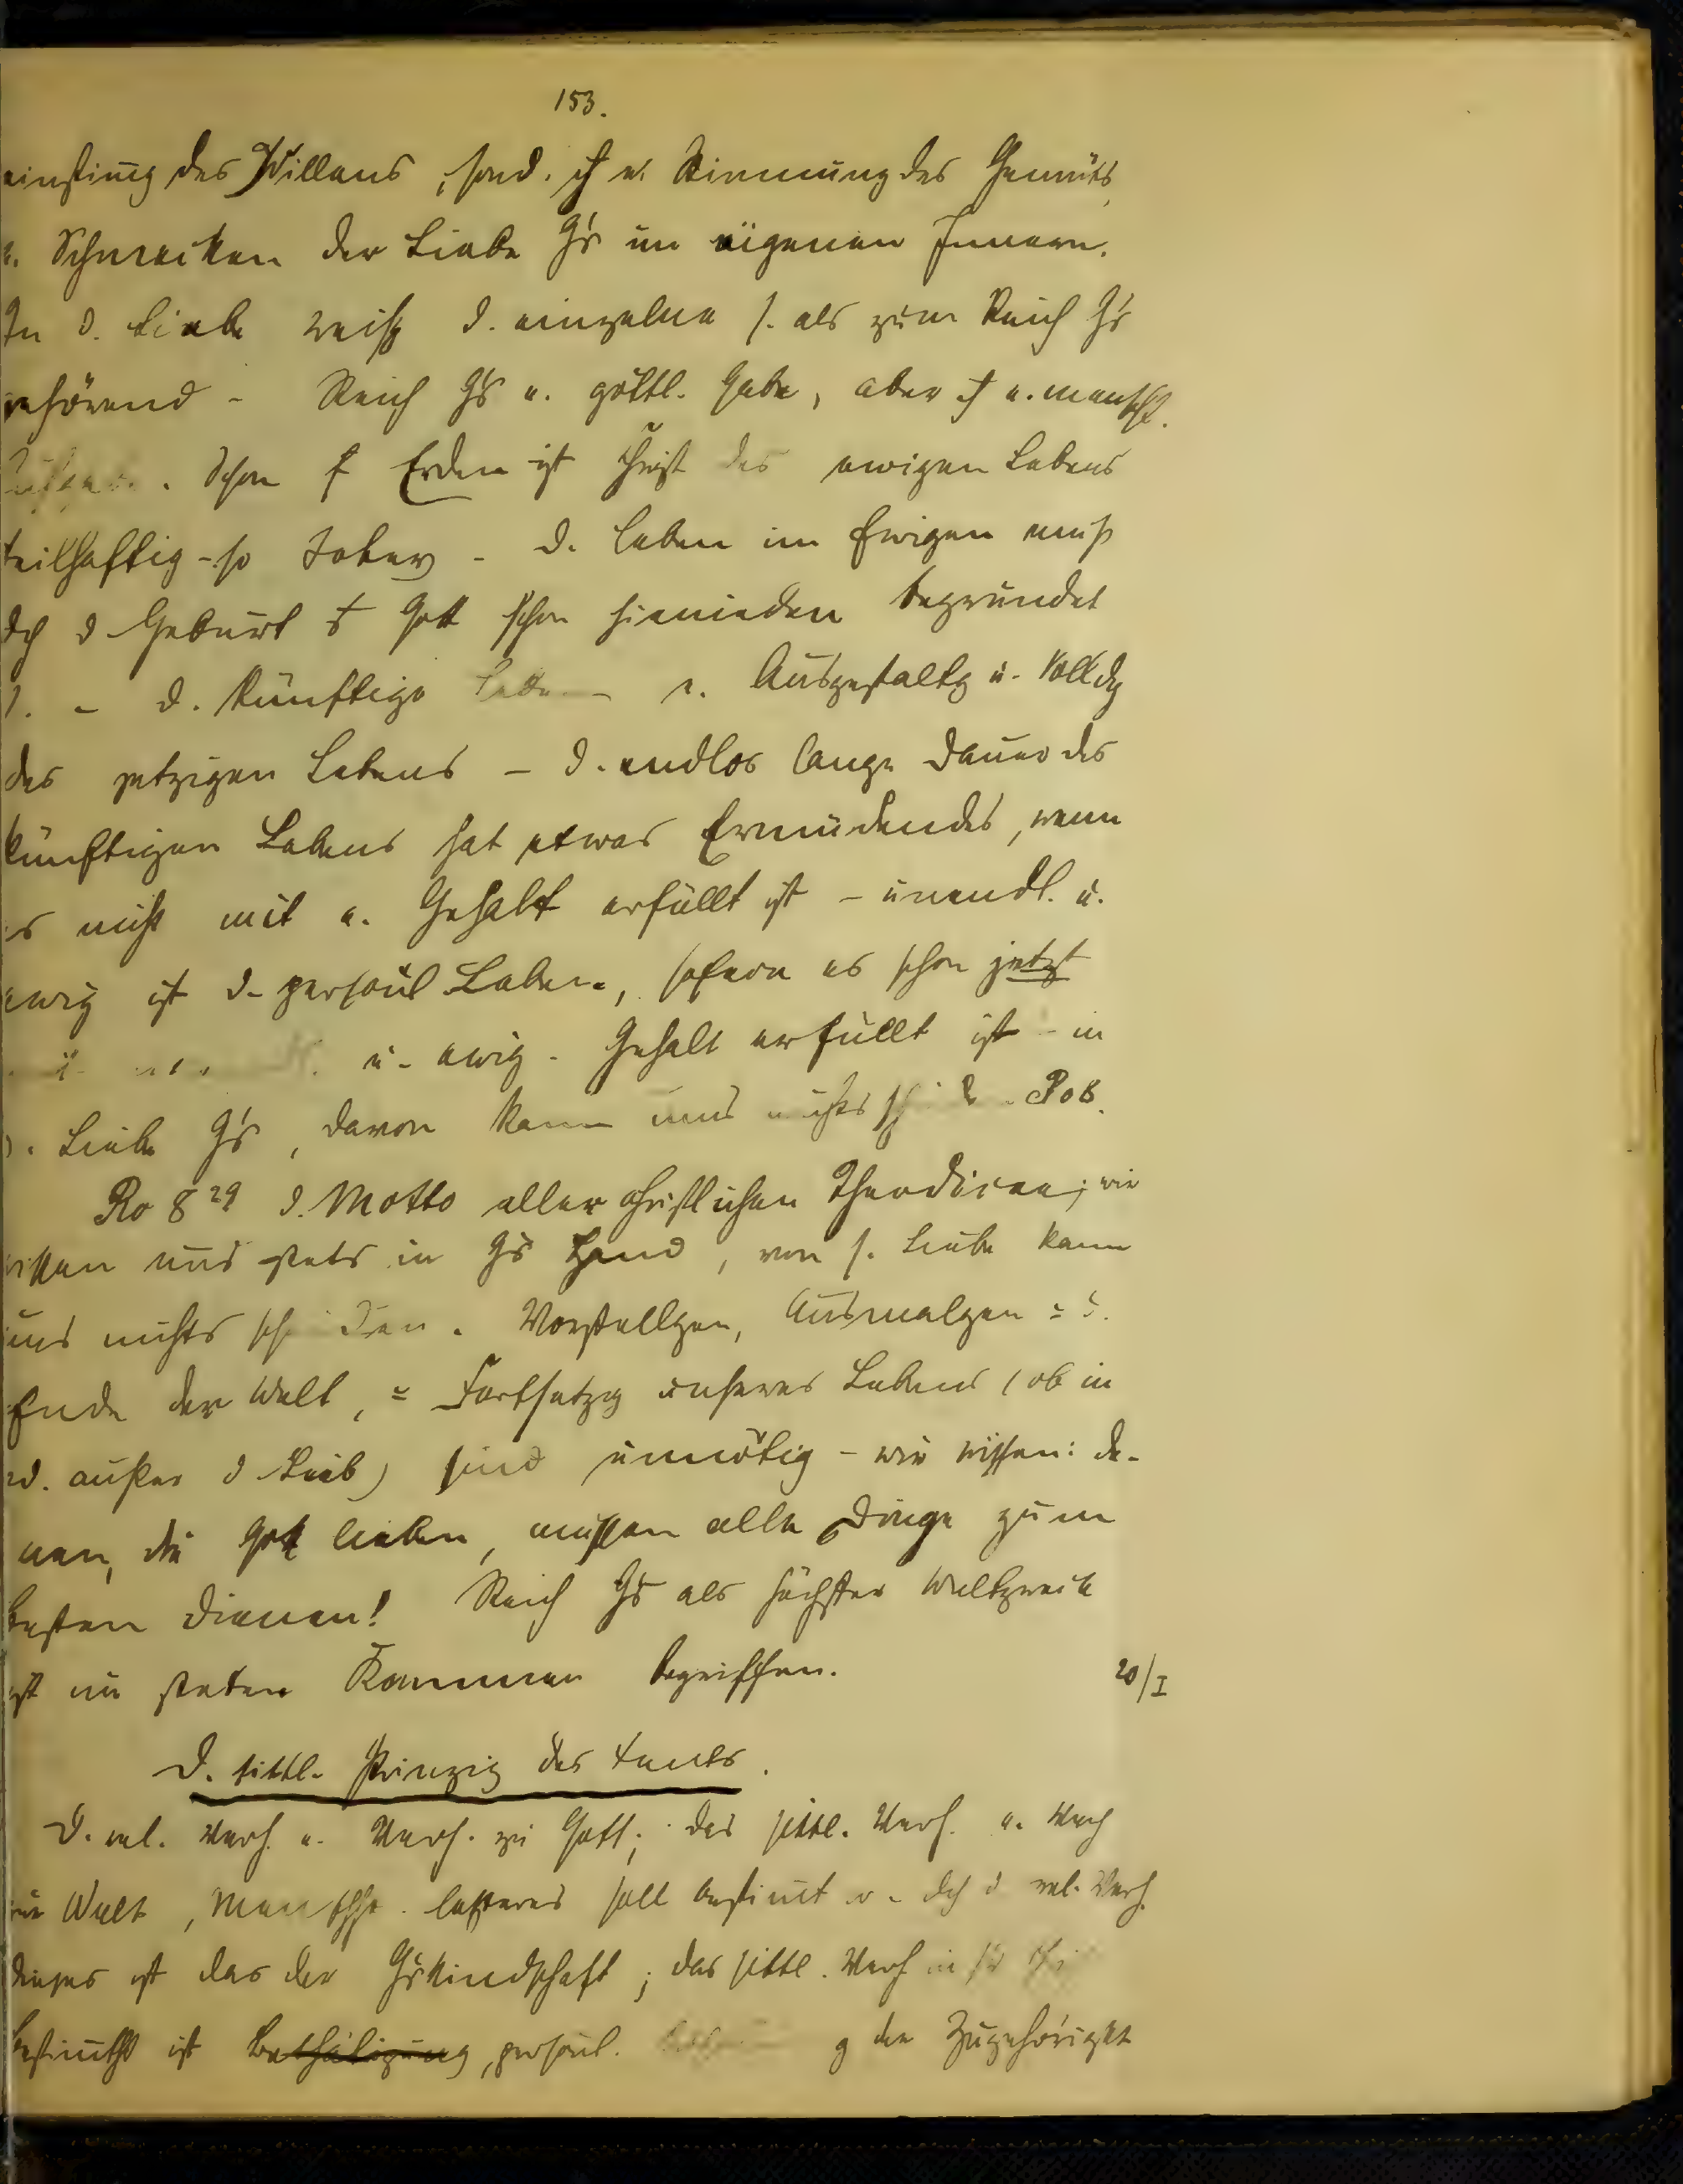 153.
des Willens, sond. u. Stimmung des Gemüts,
u. Schmecken der Liebe G's im eigenen Innern.
In d. Liebe weiß d. einzelne s. als zum Reich G's
gehörend - Reich G's u. göttl. Gabe, aber u. menschl.
Schon Erden ist Christ des ewigen Lebens
teilhaftig - so - d. Leben im Ewigen muß
dch d Geburt Gott schon hienieden begründet
- d. künftige e. Ausgestaltg u. Volldg
des jetzigen Lebens - d. endlos lange Dauer des
künftigen Lebens hat etwas Ermüdendes, wenn
es nicht mit e. Gehalt erfüllt ist - unendl. u.
ewig ist d. persönl Leben, sofern es schon jetzt
u. ewig. Gehalt erfüllt ist - in
d. Liebe G's, davon kann uns nichts
Ro 8 29 d. Motto aller christlichen Theodicee; wir
uns stets in G's Hand, von s. Liebe kann
uns nichts scheiden. Vorstellgen, Ausmalgen
Ende der Welt, Fortsetzg unseres Lebens (ob in
od. außer d Leib) sind unnötig - wir wissen: de-
nen, die Gott lieben, müssen alle Dinge zum
besten dienen! Reich G's als höchster Weltzweck
ist im steten Kommen begriffen.
20/I
D. sittl. Prinzip des
D. rel. Verh. e. Verh. zu Gott; das sittl. Verh. e. Verh
zur Welt, letzteres soll bestimt w. dch d rel. Verh.
dieses ist das der G'skindschaft; das sittl. Verh
ist Bethätigung, persönl. der Zugehörigkt